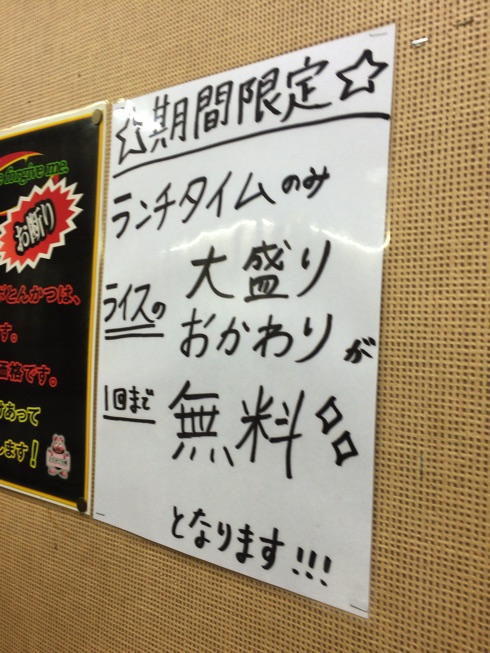 ☆期間限定☆
ランチタイムのみ
ライスの 大盛り
おかわりが
1回まで 無料
となります!!!
forgive me.
お断り
とんかつは、
す。
価格です。
あって
します!